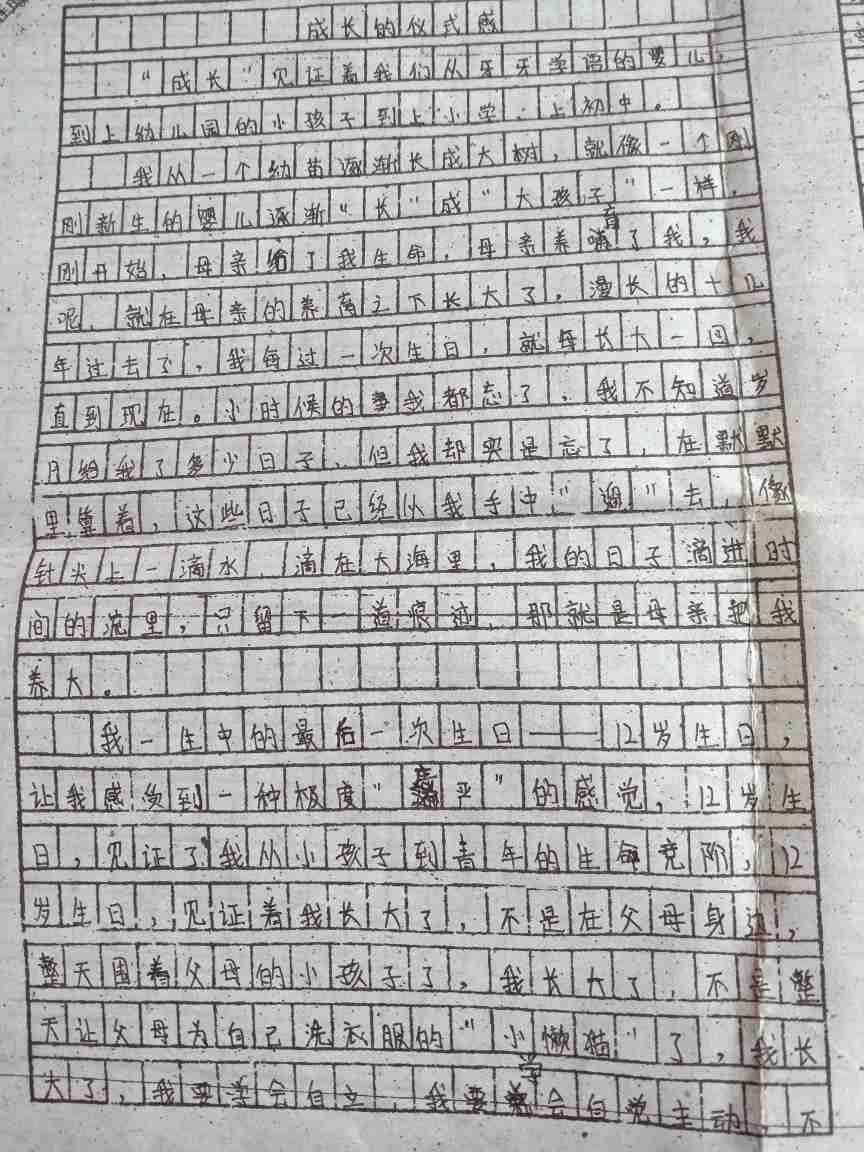 成长的仪式感
“成长”见证着我们从牙牙学语的婴儿,
到上幼儿园的小孩子到上小学,上初中。
我从一个幼苗逐渐长成大树,就像一个刚
刚新生的婴儿逐渐“长”成“大孩子”一样,
刚开始,母亲给了我生命,母亲养育了我,我
呢,就在母亲的养育之下长大了,漫长的十几
年过去了,我每过一次生日,就每长大一回,
直到现在。小时候的事我都忘了,我不知道岁
月给我了多少日子,但我却实是忘了,在默默
里算着,这些日子已经从我手中“遛”去,像
针尖上一滴水,滴在大海里,我的日子滴进时
间的流里,只留下一道痕迹,那就是母亲把我
养大。
我一生中的最后一次生日——12岁生日,
让我感受到一种极度“庄严”的感觉,12岁生
日,见证了我从小孩子到青年的生命竞阶,12
岁生日,见证着我长大了,不是在父母身边,
整天围着父母的小孩子了,我长大了,不是整
天让父母为自己洗衣服的“小懒猫”了,我长
大了,我要学会自立,我要学会自觉主动,不